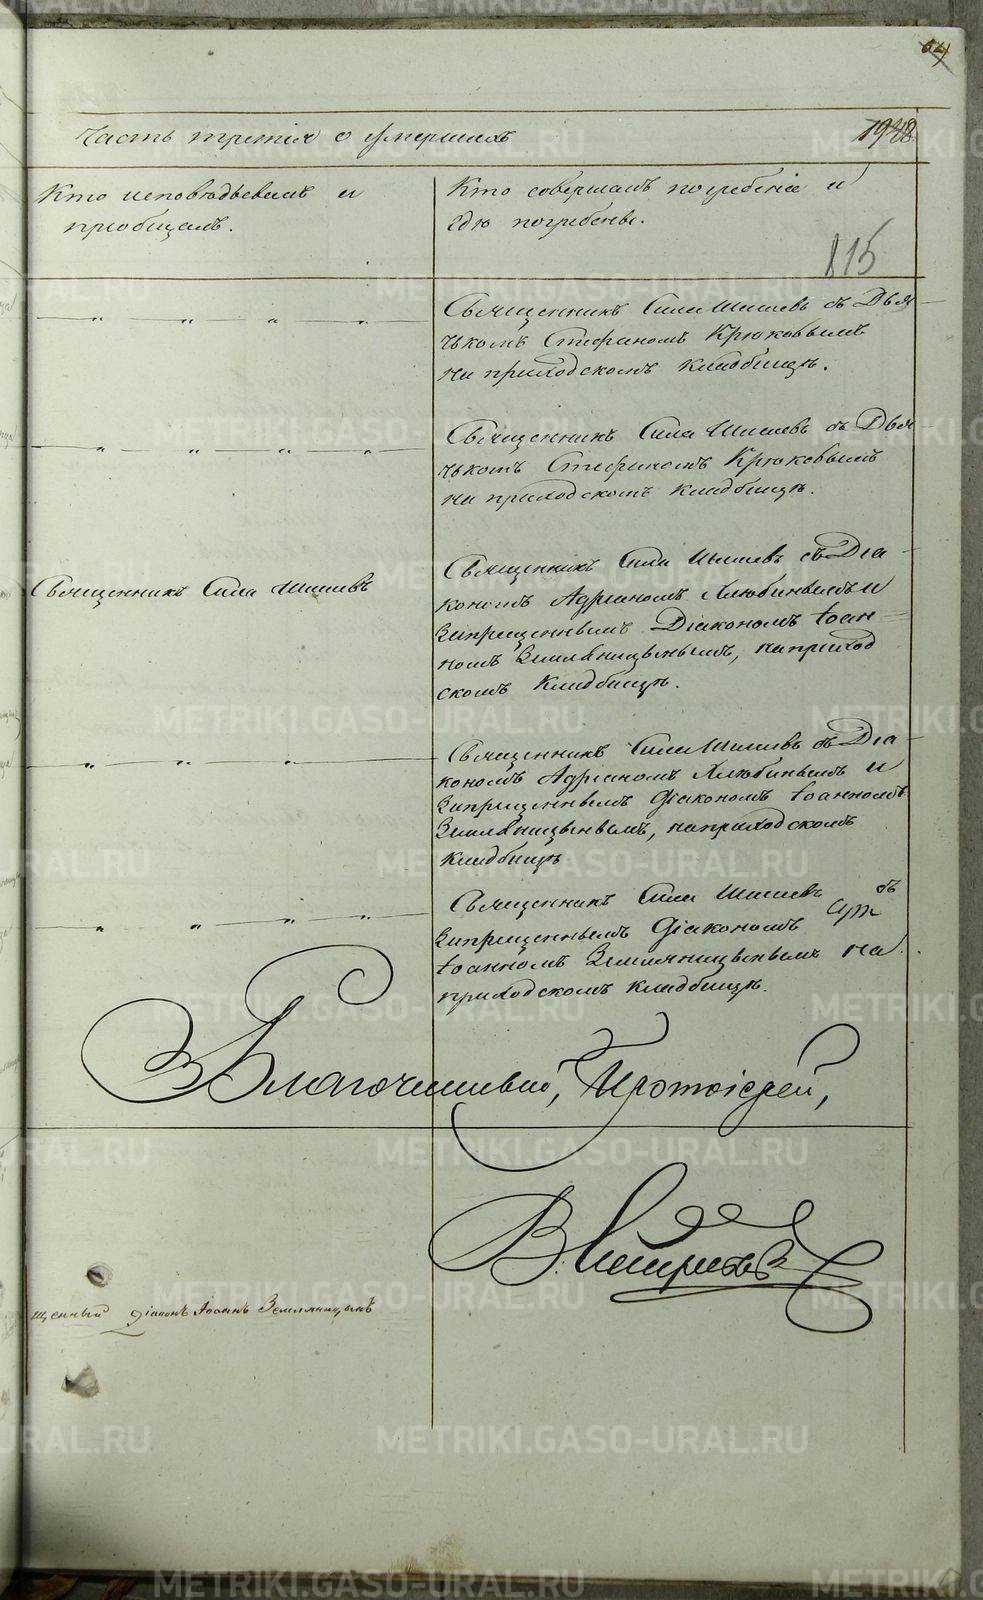 64
Часть третія о умершихъ
Кто исповѣдывалъ и
пріобщалъ.
Кто совершалъ погребеніе и
гдѣ погребены.
115
Священникъ Сила Шишевъ съ Дья
чькомъ Стефаномъ Крюковымъ
на приходскомъ кладбищѣ.
Священникъ Сила Шишевъ съ Дья
чькомъ Стефаномъ Крюковымъ
на приходскомъ кладбищѣ.
Священникъ Сила Шишевъ
Священникъ Сила Шишевъ съ Діа
кономъ Адріаномъ Хлюбинымъ и
Запрещеннымъ Діакономъ Іоан=
номъ Земляницынымъ, на приход
скомъ кладбищѣ.
Священникъ Сила Шишевъ съ Діа
кономъ Адріаномъ Хлюбинымъ и
Запрещеннымъ діакономъ Іоанномъ
Земляницынымъ, на приходскомъ
кладбищѣ
Священникъ Сила Шишевъ съ
Запрещеннымъ Діакономъ
Іоанномъ Земляницынымъ на
приходскомъ кладбищѣ.
Благочинный, Протоіерей,
В.
щенный діаконъ Іоаннъ Земляницынъ
METRIKI.GASO-URAL.RU